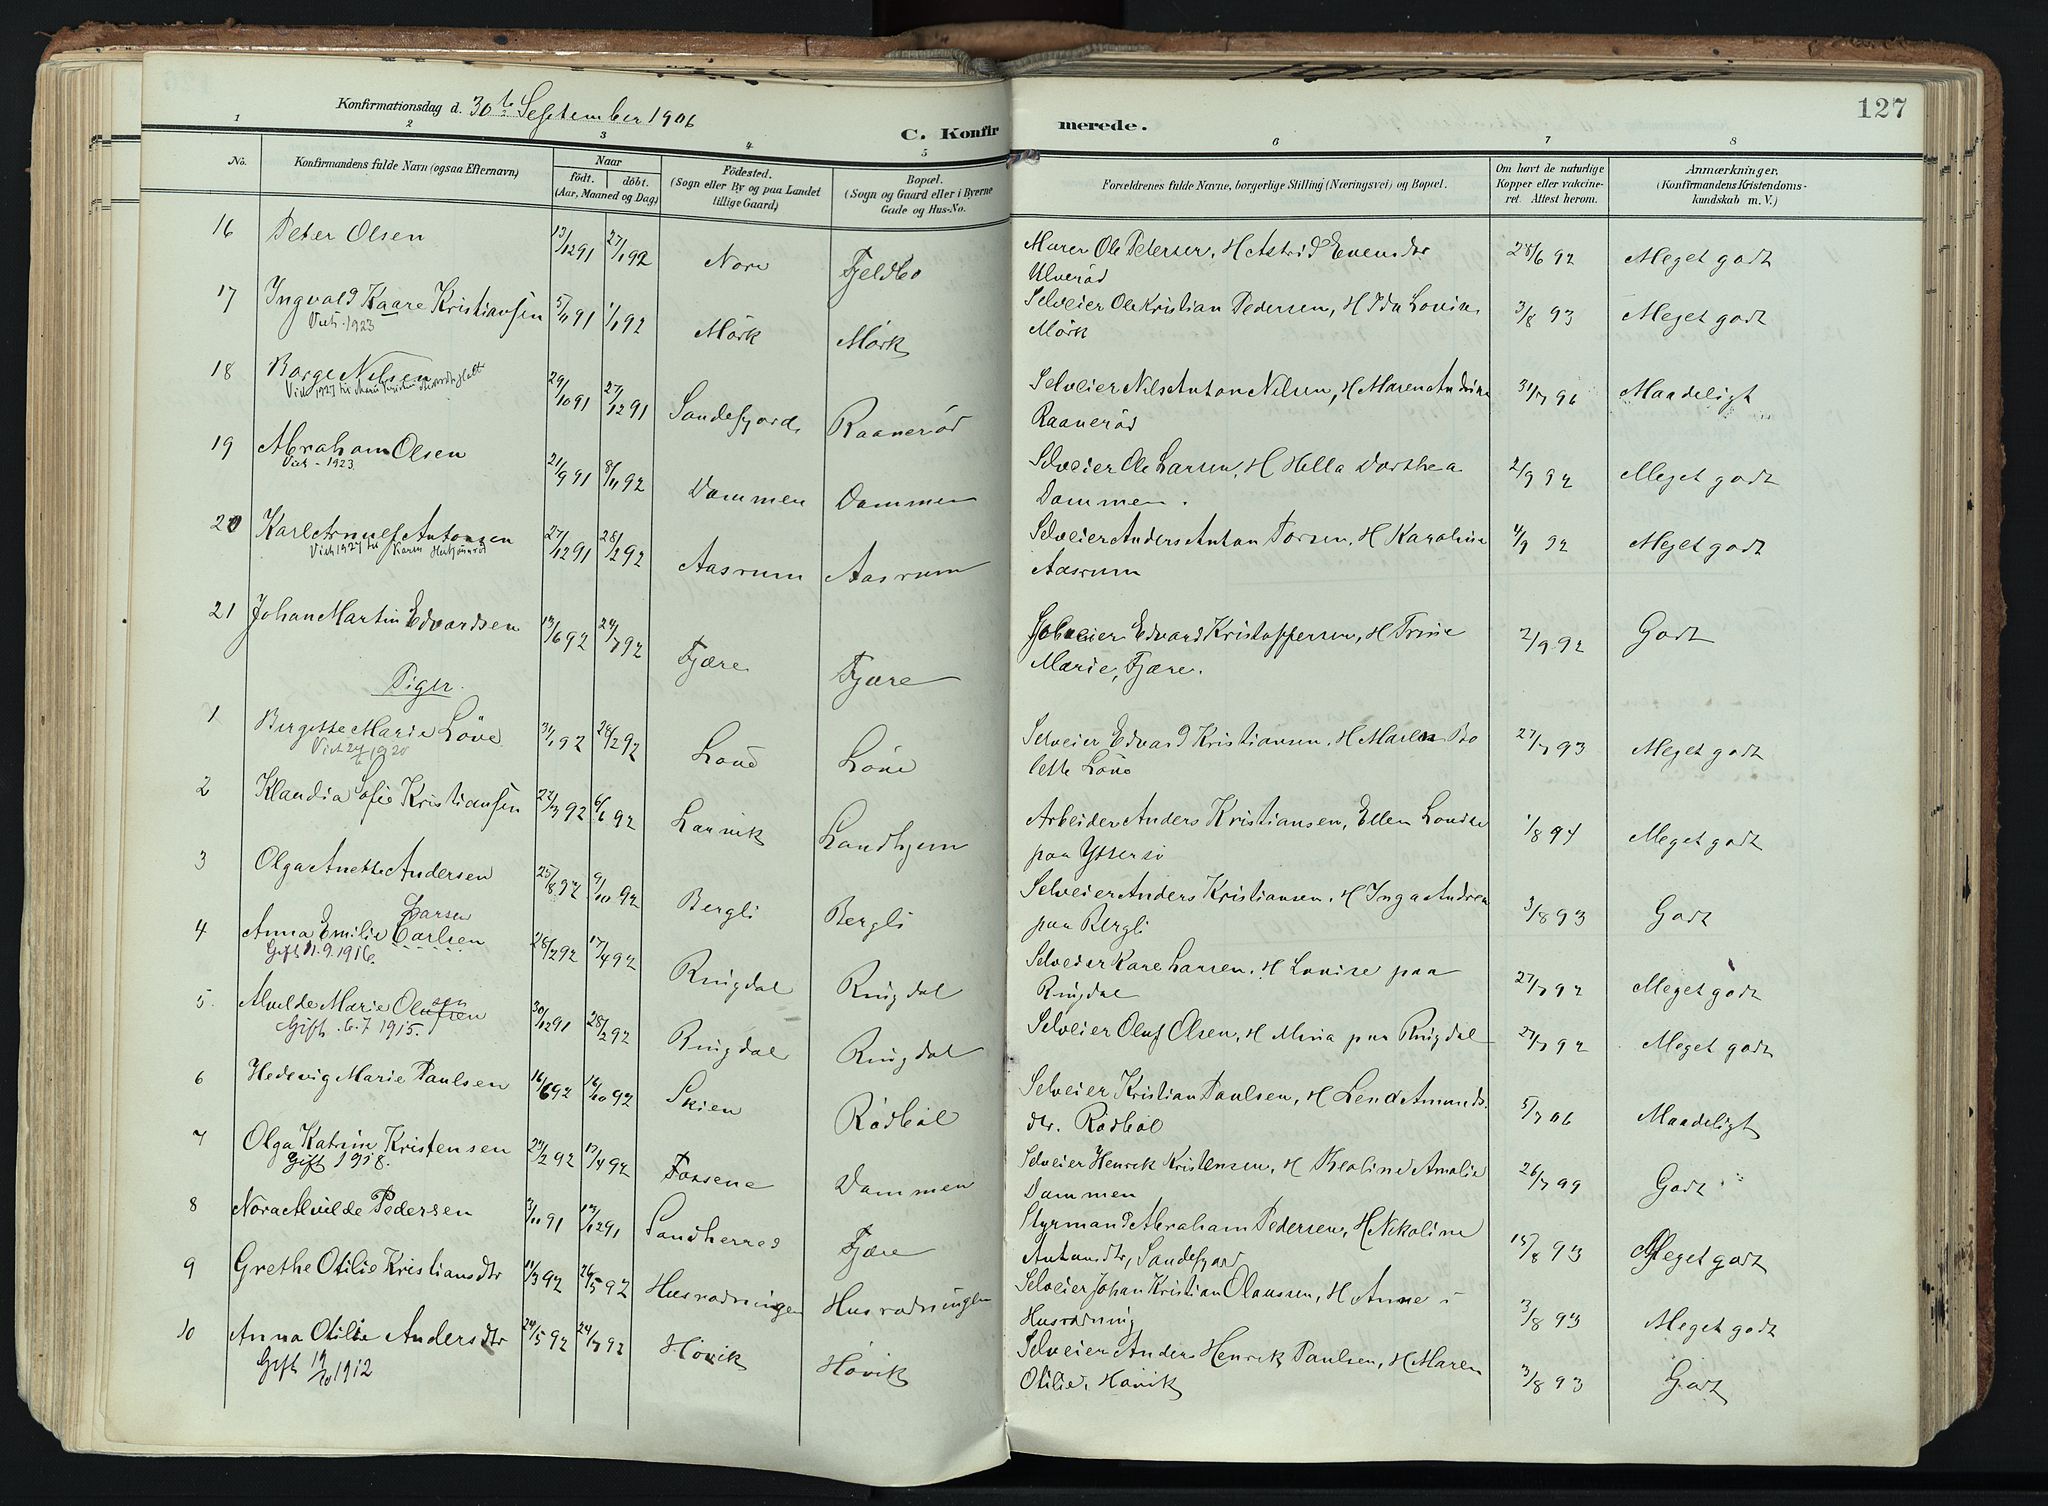 127
Konfirmationsdag d. 30te September 1906
C. Konfirmerede.
1 2 3 4 5 6 7 8
No. Konfirmandens fulde Navn (ogsaa Efternavn) Naar födt. döbt. (Aar, Maaned og Dag) Födested. (Sogn eller By og paa Landet tillige Gaard) Bopæl. (Sogn og Gaard eller i Byerne Gade og Hus-No. Forældrenes fulde Navne, borgerlige Stilling (Næringsvei) og Bopæl. Om havt de naturlige Kopper eller vakcineret. Attest herom. Anmærkninger. (Konfirmandens Kristendomskundskab m. V.)
16 Peter Olsen 13/12 91 27/1 92 Nore Fjeldbo Murer Ole Petersen, H Astrid Evensdtr 28/6 92 Meget godt
Ulverød
17 Ingvald Kaare Kristiansen 5/11 91 1/1 92 Mörk Mörk Selveier Ole Kristian Pedersen, H Ida Lovise 3/8 93 Meget godt
Viet 1923 Mörk
18 Borge Nilsen 29/10 91 27/12 91 Sandefjord Raanerød Selveier Nils Anton Nilsen, H Maren Andrine 31/7 96 Maadeligt
Viet 1927 til Raanerød
19 Abraham Olsen 21/9 91 8/11 92 Dammen Dammen Selveier Ole Larsen, H Hella Dorthea 2/9 92 Meget godt
Viet - 1923 Dammen.
20 Karl Arnulf Antonsen 27/12 91 28/2 92 Aasrum Aasrum Selveier Anders Anton Torsen, H Karoline 4/9 92 Meget godt
Viet 1927 til Karen Aasrum
21 Johan Martin Edvardsen 13/6 92 24/7 92 Fjære Fjære Selveier Edvard Kristoffersen, H Trine 2/9 92 Godt
Marie, Fjære.
Piger.
1 Bergette Marie Löve 31/1 92 28/2 92 Löve Löve Selveier Edvard Kristiansen, H Maren Bo 27/7 93 Meget godt
Viet 1920 lette Löve
2 Klaudia Sofie Kristiansen 22/3 92 6/6 92 Larvik Landhjem Arbeider Anders Kristiansen, Ellen Lovise 1/8 94 Meget godt
paa Yttersö
3 Olga Anette Andersen 25/8 92 9/10 92 Bergli Bergli Selveier Anders Kristiansen, H Inga Andrea 3/8 93 Godt
paa Bergli
Larsen
4 Anna Emilie Carlsen 28/2 92 17/4 92 Ringdal Ringdal Selveier Kare Larsen, H Lovise paa 27/7 92 Meget godt
Gift 11.9.1916. Ringdal
5. Alvilde Marie Olufsen 30/12 91 28/2 92 Ringdal Ringdal Selveier Oluf Olsen, H Mina paa Ringdal 27/7 92 Meget godt
Gift .6.7 1915.
6 Hedevig Marie Paulsen 16/6 92 16/10 92 Skien Rödböl Selveier Kristian Paulsen, H Lene Amunds 5/7 06 Maadeligt
dtr. Rödböl
7 Olga Katrin Kristensen 24/2 92 17/4 92 Fossene Dammen Selveier Henrik Kristensen, H Beoline Amalie 26/7 99 Godt
Gift 1918. Dammen
8 Nora Alvilde Pedersen 3/11 91 13/12 91 Sandherred Fjære Styrmand Abraham Pedersen, H Nikoline 15/8 93 Meget godt
Antonsdtr, Sandefjord
9 Grethe Otilie Kristiansdtr 11/3 92 26/5 92 Husrødningen Husrødningen Selveier Johan Kristian Olaussen, H Anne i 3/8 93 Meget godt
Husrødning
10 Anna Otilie Andersdtr 24/5 92 24/7 92 Hövik Hövik Selveier Anders Henrik Paulsen, H Maren 3/8 93 Godt
Gift 19/10 1912 Otilie, Hövik